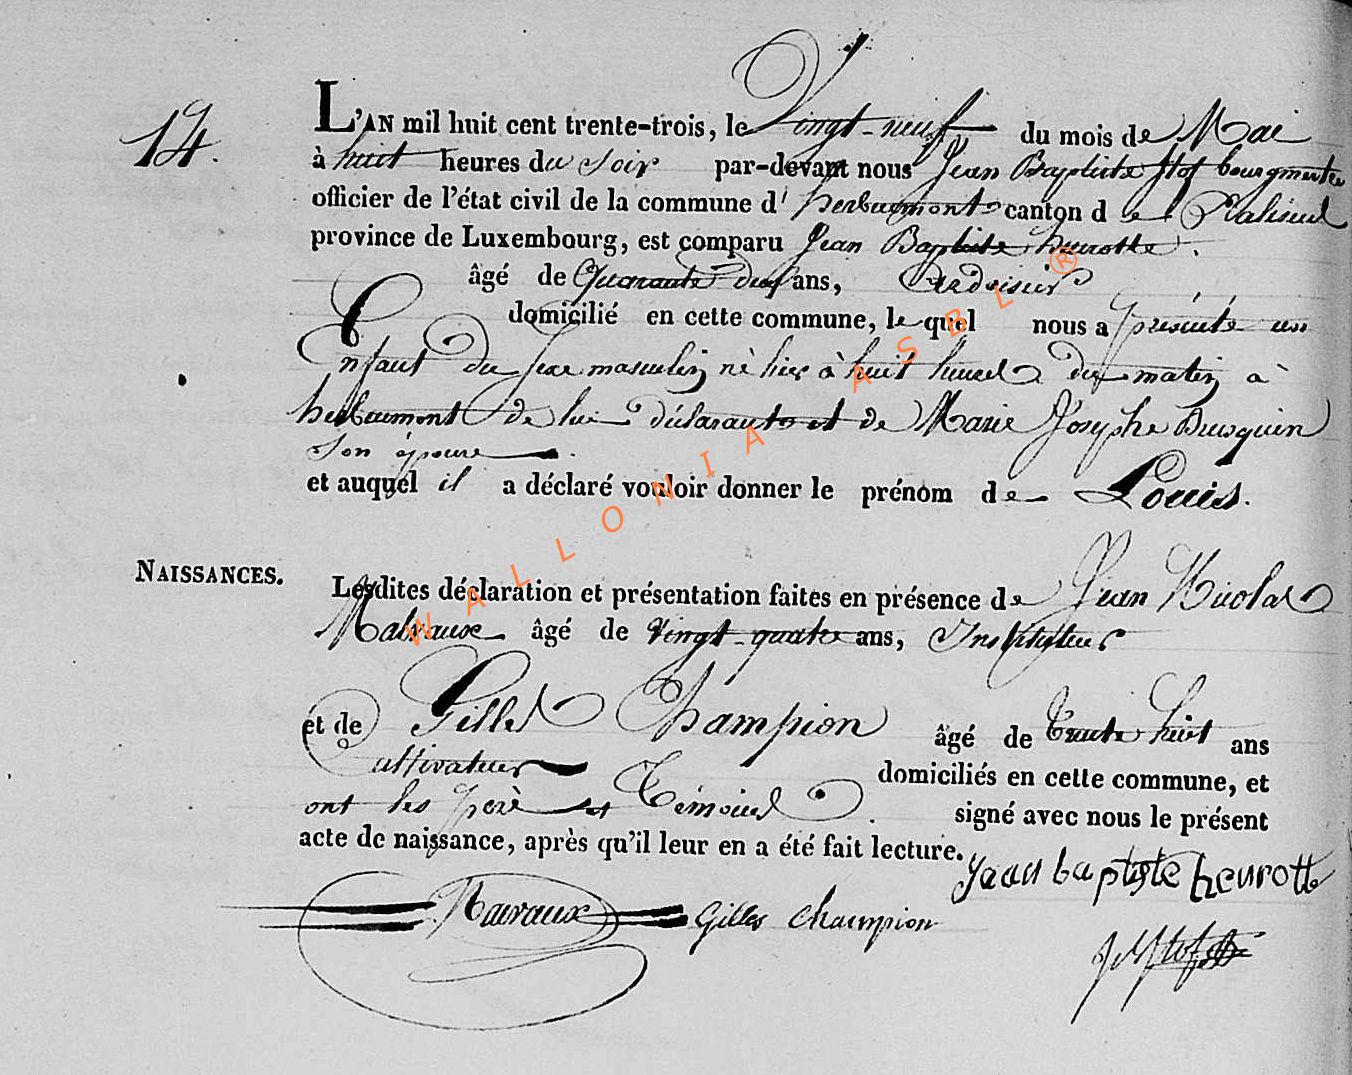 14.
L'AN mil huit cent trente-trois, le Vingt-neuf du mois de Mai
à huit heures du soir par-devant nous Jean Baptiste Stof bourgmestre
officier de l'état civil de la commune d' herbeumont canton de Paliseul
province de Luxembourg, est comparu Jean Baptiste heurotte.
âgé de Quarante deux ans, Ardoisier
domicilié en cette commune, lequel nous a présenté un
Enfant du sexe masculin né hier à huit heures du matin à
herbeumont de lui déclarant et de Marie Josephe Brusquin
Son épouse
et auquel il a déclaré vouloir donner le prénom de Louis.
NAISSANCES.
Lesdites déclaration et présentation faites en présence de Jean Nicolas
Malvaux âgé de vingt-quatre ans, Instituteur
et de Gilles Champion âgé de trente huit ans
Cultivateur domiciliés en cette commune, et
ont les père et Témoins signé avec nous le présent
acte de naissance, après qu'il leur en a été fait lecture.
Jean baptiste heurotte
Malvaux Gilles Champion
WALLONIA ASBL ®